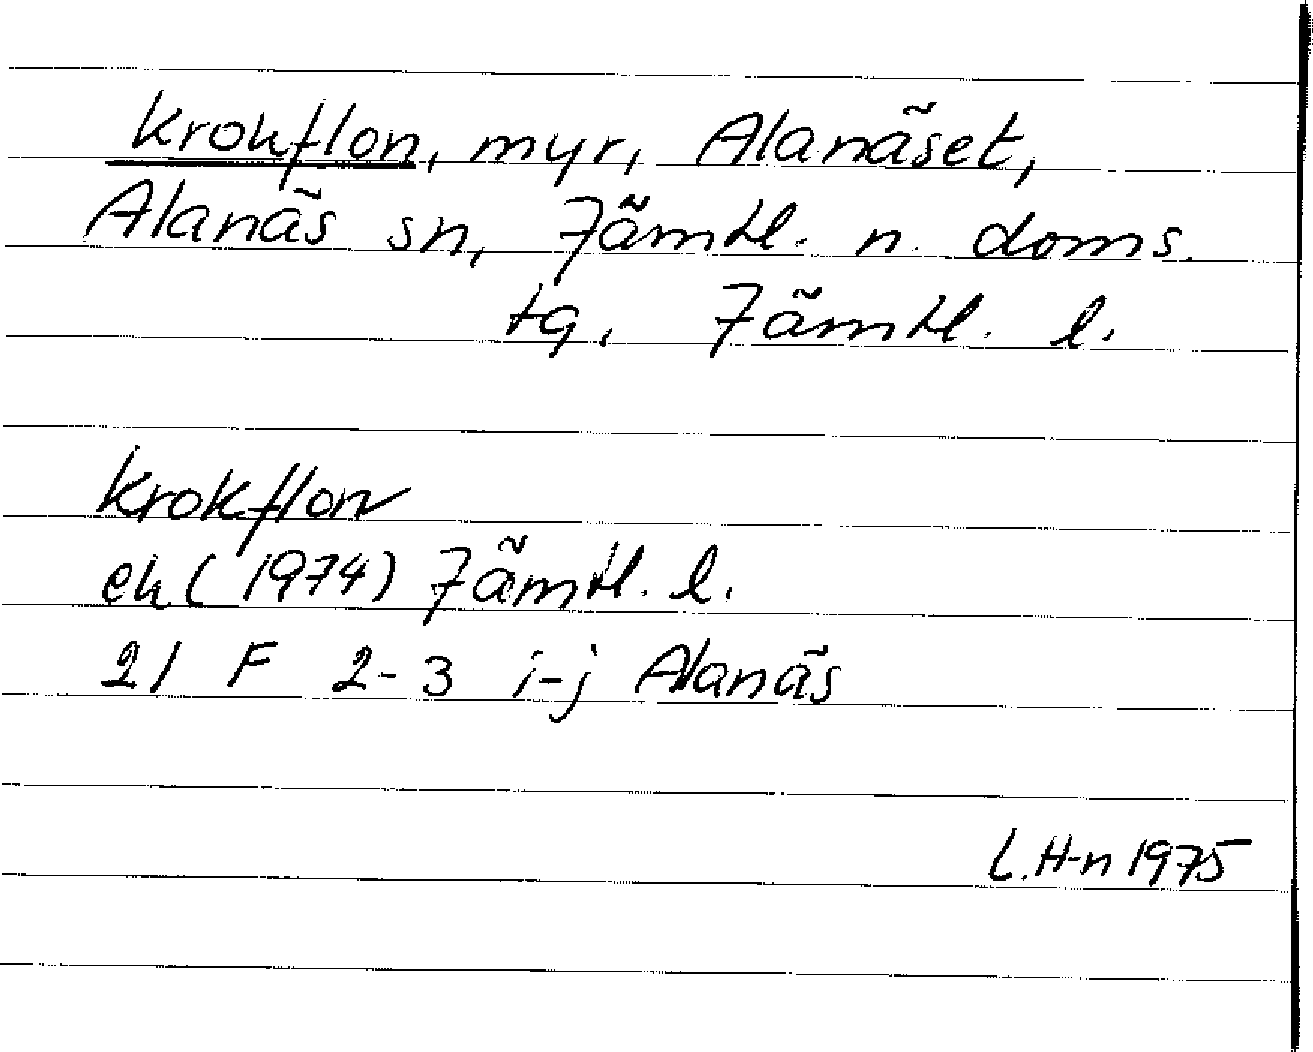 Krokflon, myr, Alanäset,
Alanäs sn, Jämtl. n. doms.
tg, Jämtl. l.
Krokflon
ek (1974) Jämtl. l.
21 F 2-3 i-j Alanäs
L.H-n 1975